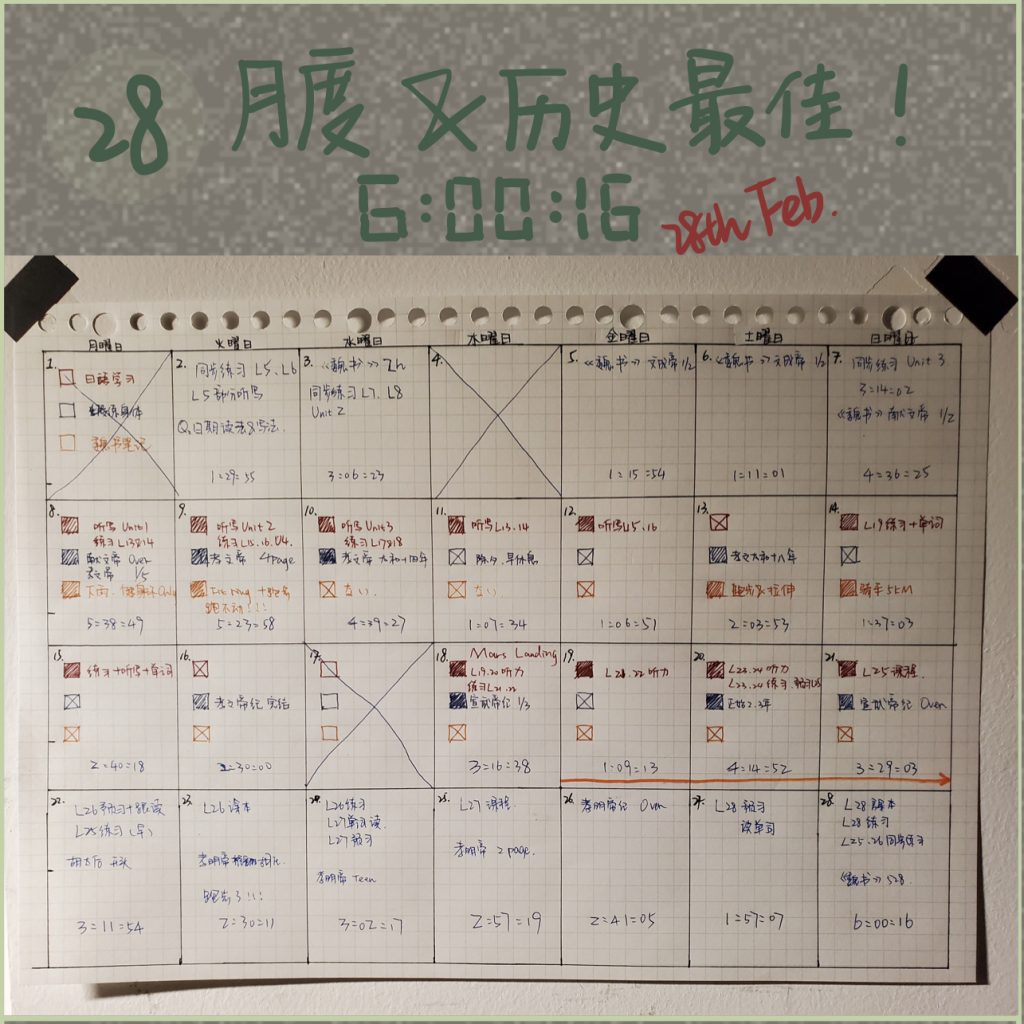 28 月度 & 历史最佳！
6:00:16
28th Feb.
月曜日 火曜日 水曜日 木曜日 金曜日 土曜日 日曜日
1.
日語学习
锻练身体
魏书笔记
2.
同步练习 L5、L6
L5 部分听写
Q.日期读法&写法
1=29=55
3. 《魏书》 2h
同步练习 L7、L8
Unit 2
3=06=23
4.
5. 《魏书》 文成帝 1/2
1=15=54
6. 《魏书》 文成帝 1/2
1=11=01
7. 同步练习 Unit 3
3=14=02
《魏书》 献文帝 1/2
4=36=25
8.
听写 Unit1
练习L13&14
献文帝 Over
1/5
5=38=49
9.
听写 Unit 2
练习L15.16.U4.
孝文帝 4page
跑不动！！！
5=23=58
10.
听写 Unit3
练习L17&18
孝文帝 太和十四年
ない.
4=39=27
11.
听写L13.14
除夕.早休息
ない.
1=07=34
12.
听写L15.16
1=06=51
13.
孝文太和十八年
跑步&拉伸
2=03=53
14.
L19练习+单词
骑车5KM
1=37=03
15.
练习+听写+单词
2=40=18
16.
孝文帝纪 完结
2=30=00
17.
18. Mars Landing
L19.20听力
练习L21.22
宣武帝纪 1/3
3=16=38
19.
L21.22 听力
1=09=13
20.
L23.24 听力
L23.24 练习.预习L25
正始2.3年
4=14=52
21.
L25 课程.
宣武帝纪 Over
3=29=03
22.
L26预习+跟读
L25练习(早)
胡太后 开头
3=11=54
23.
L26 课本
跑步了!!!
2=30=11
24.
L26练习
L27单词读.
L27预习
孝明帝 Teen
3=02=17
25. L27 课程.
孝明帝 2 page.
2=57=19
26. 孝明帝纪 Over
2=41=05
27. L28 预习
读单词
1=57=07
28.
L28 课本
L28 练习
L25.26同步练习
《魏书》 528
6=00=16